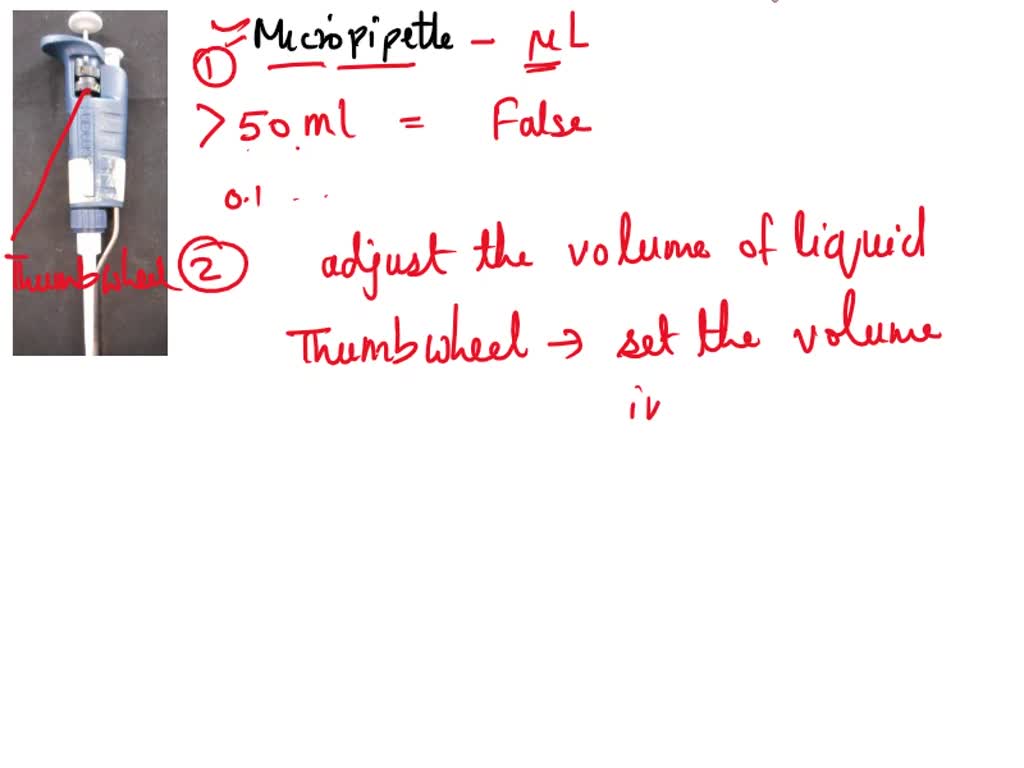 ① Micropipette - μL
> 50 ml = False
0.1 ...
② adjust the volume of liquid
Thumbwheel → set the volume
in
Thumbwheel